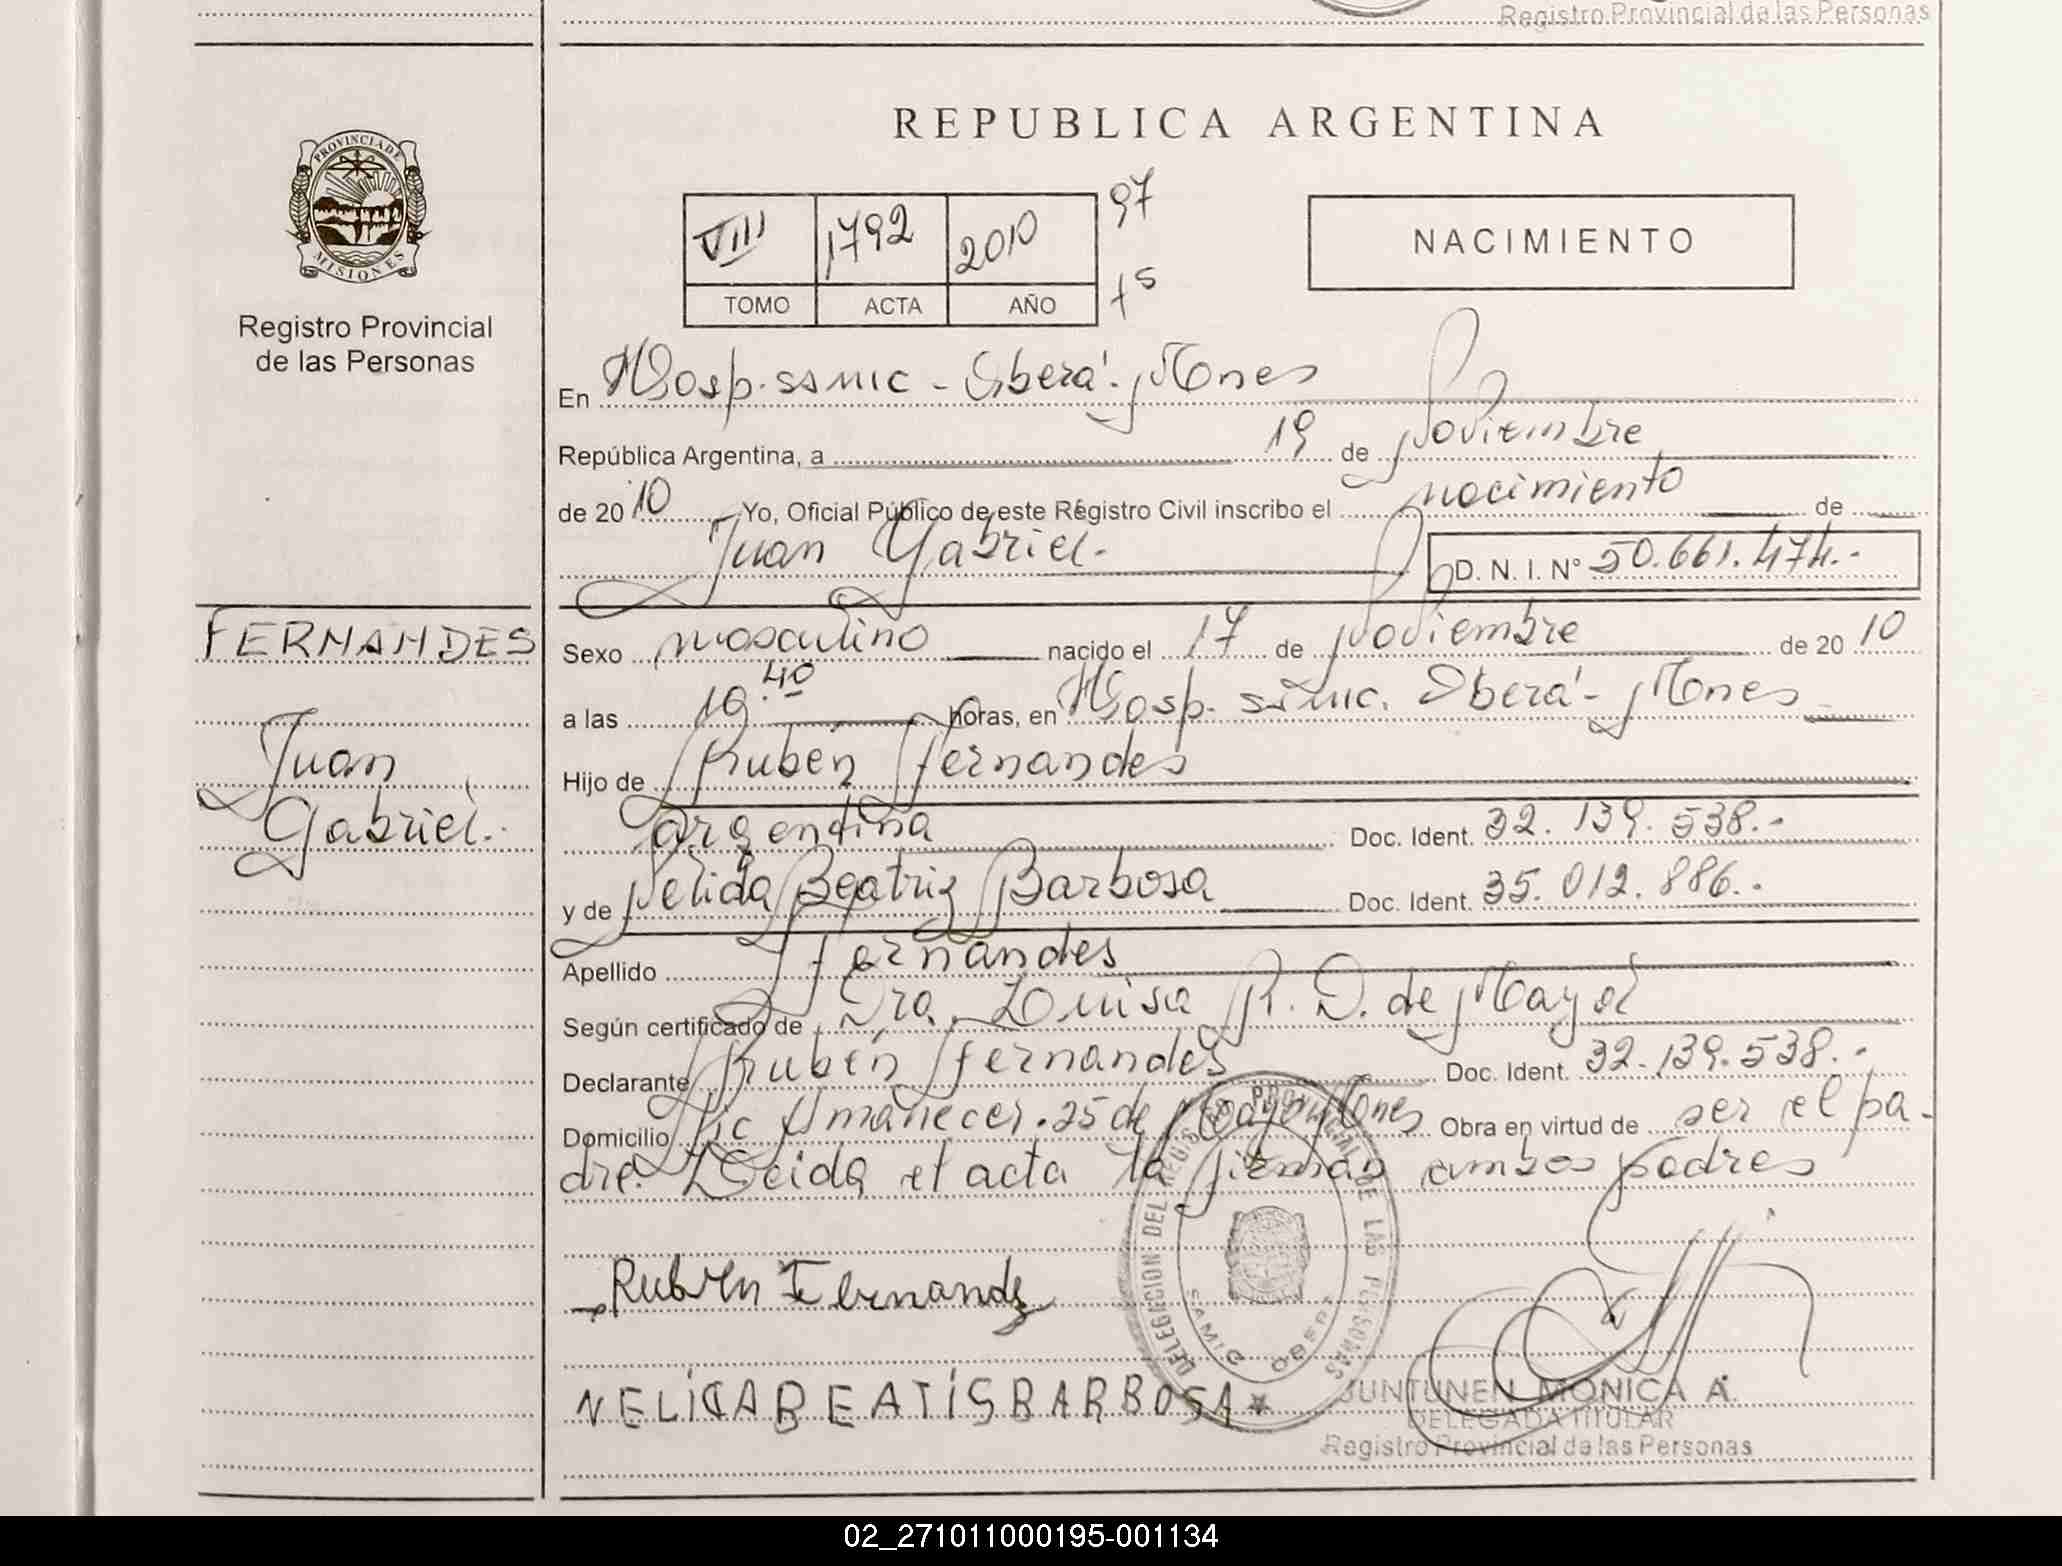 Registro Provincial de las Personas
REPUBLICA ARGENTINA
PROVINCIA DE
MISIONES
Registro Provincial
de las Personas
VIII 1792 2010 97
TOMO ACTA AÑO
NACIMIENTO
En Hosp. SAMIC - Oberá - Mones
República Argentina, a 19 de Noviembre
de 20 10 Yo, Oficial Público de este Registro Civil inscribo el nacimiento de
Juan Gabriel.- D. N. I. N° 50.661.474.-
FERNANDES
Juan
Gabriel.
Sexo masculino nacido el 17 de Noviembre de 20 10
a las 19.40 horas, en Hosp. SAMIC. Oberá - Mones
Hijo de Rubén Fernandes
argentina Doc. Ident. 32.139.538.-
y de Nelida Beatriz Barbosa Doc. Ident. 35.012.886.-
Apellido Fernandes
Según certificado de Dra. Luisa R. D. de Mayol
Declarante Rubén Fernandes Doc. Ident. 32.139.538.-
Domicilio Pic Amanecer. 25 de Mayo Mones Obra en virtud de ser el pa-
dre. Leida el acta la firman ambos padres
DELEGACION DEL REGISTRO PROVINCIAL DE LAS PERSONAS
SAMIC OBERA
Rubén Fernandez
NELIDA BEATIS BARBOSA
JUNTUNEN MONICA A.
DELEGADA TITULAR
Registro Provincial de las Personas
02_271011000195-001134